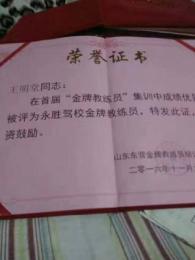 荣誉证书
王明堂同志：
在首届“金牌教练员”集训中成绩优
被评为永胜驾校金牌教练员，特发此证，
资鼓励。
山东东营金牌教练员
二零一六年十一月